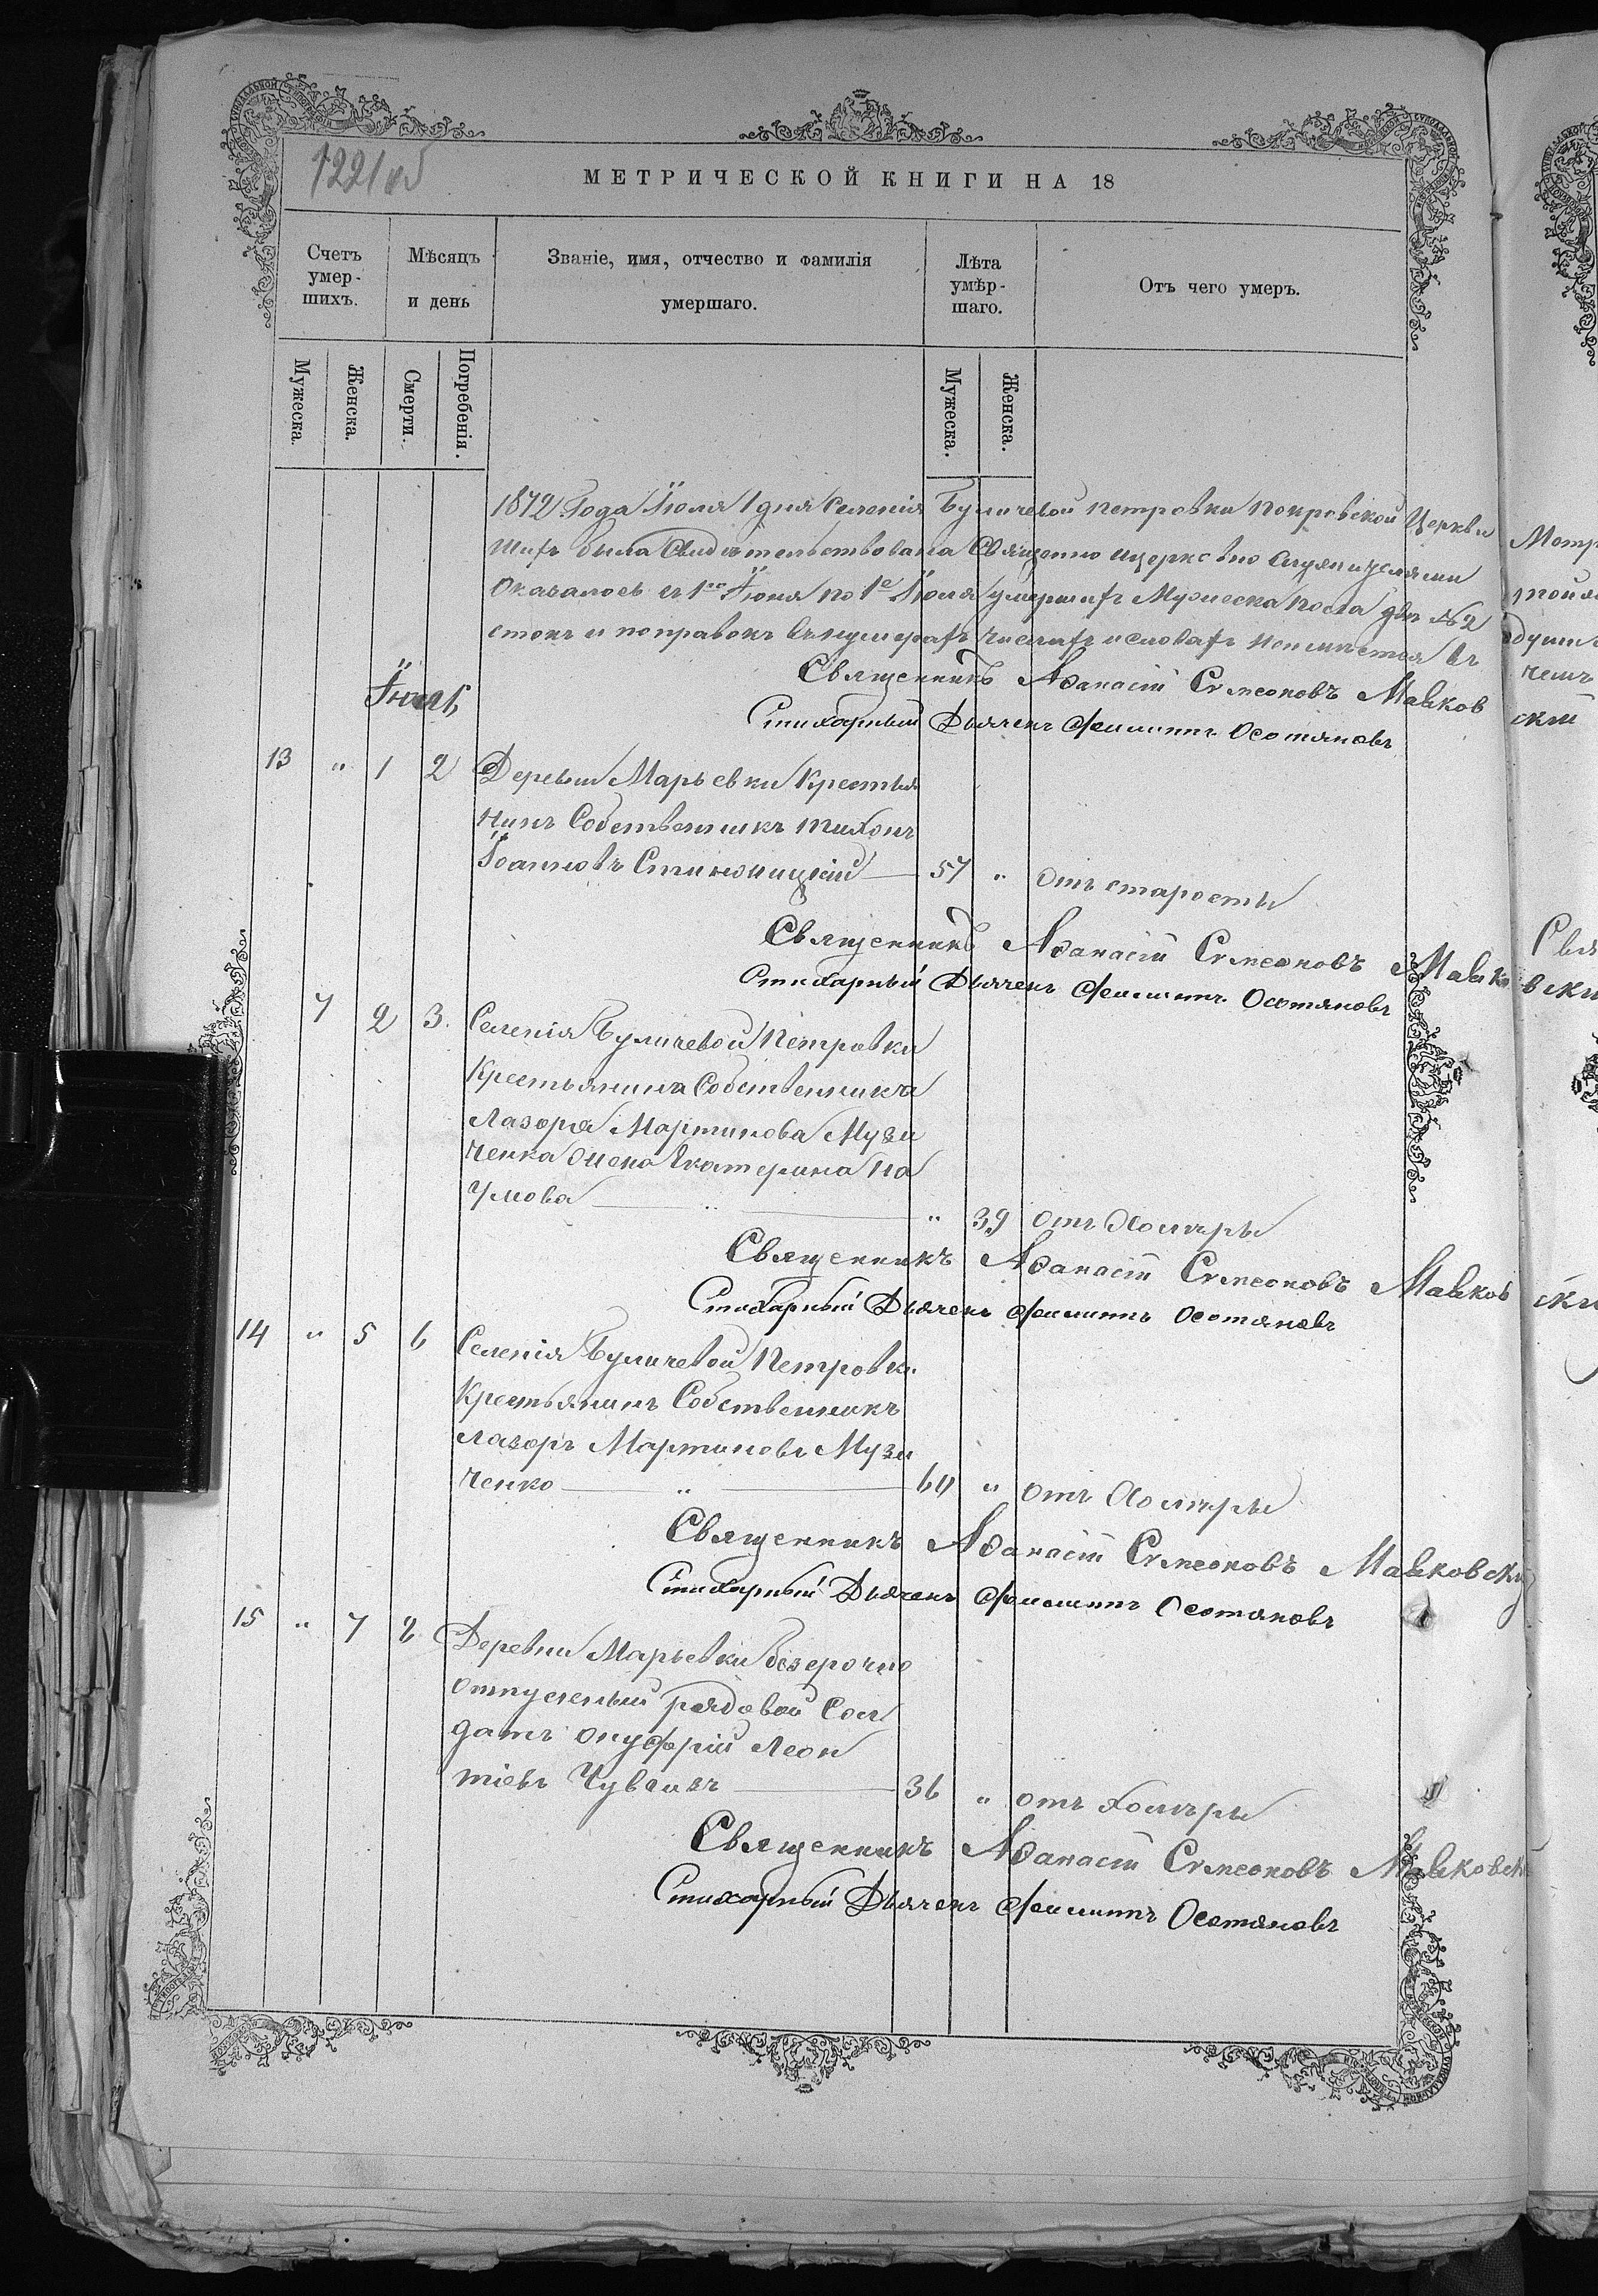 1221 об
МЕТРИЧЕСКОЙ КНИГИ НА 18
Счетъ умер-шихъ.
Мѣсяцъ и день
Званіе, имя, отчество и фамилія умершаго.
Лѣта умѣр-шаго.
Отъ чего умеръ.
Мужеска.
Женска.
Смерти.
Погребенія.
Мужеска.
Женска.
1872 Года Іюля 1 дня Селенія Буличевой Петровки Покровской Церкви
была Свидѣтельствована Священно
Оказалось съ 1го Іюня по 1е Іюля умершихъ Мужеска пола два №2
и поправокъ въ нумерахъ числахъ и словахъ неимѣется въ
Священникъ Аѳанасій Сѵмеоновъ Маяков
Стихарный Дьячекъ Филиппъ Осотяновъ
Іюль
13 " 1 2 Деревни Марьевки Крестья
нинъ Собственникъ Тихонъ
Іоанновъ 57 " отъ старости
Священникъ Аѳанасій Сѵмеоновъ Маяко
Стихарный Дьячекъ Филиппъ Осотяновъ
7 2 3. Селенія Буличевой Петровки
Крестьянина Собственника
Лазоря Мартинова Музи
ченка Жена Екатерина На
умова " 39 отъ Холеры
Священникъ Аѳанасій Сѵмеоновъ Маяков
Стихарный Дьячекъ Филиппъ Осотяновъ
14 " 5 6 Селенія Буличевой Петровки
Крестьянинъ Собственникъ
Лазорь Мартиновъ Музи
ченко " 60 " отъ Холеры
Священникъ Аѳанасій Сѵмеоновъ Маяковскій
Стихарный Дьячекъ Филиппъ Осотяновъ
15 " 7 8 Деревни Марьевки безсрочно
отпускный рядовой Сол
датъ Онуфрій Леон
тіевъ 36 " отъ Холеры
Священникъ Аѳанасій Сѵмеоновъ Маяковск
Стихарный Дьячекъ Филиппъ Осотяновъ